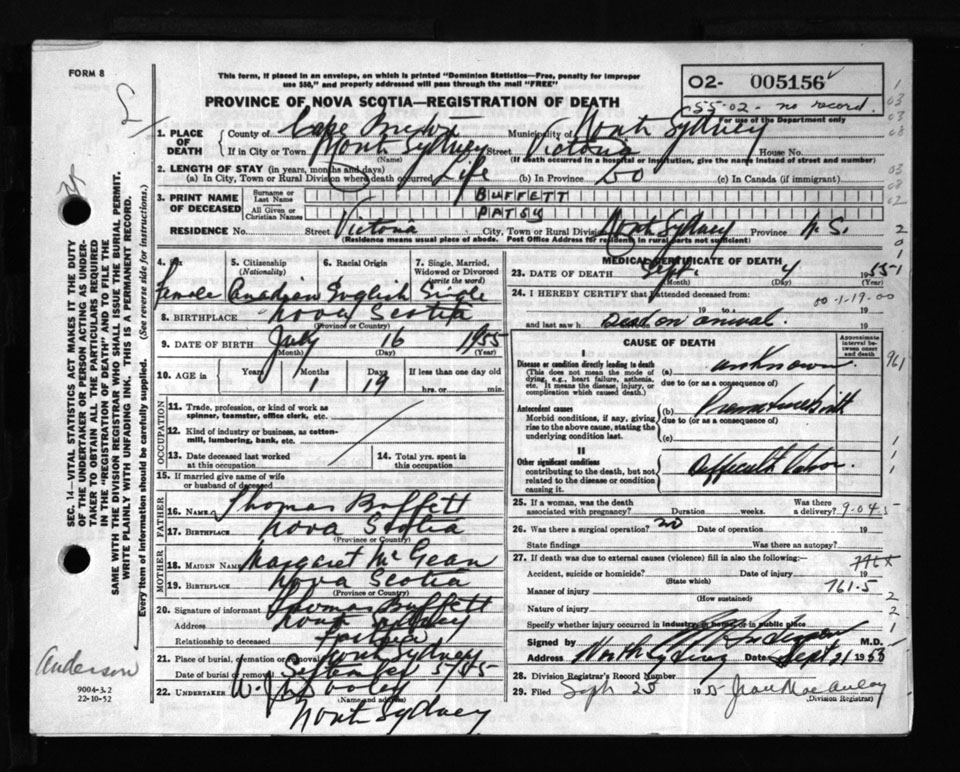 FORM 8
This form, if placed in an envelope, on which is printed "Dominion Statistics—Free, penalty for improper
use $50," and properly addressed will pass through the mail "FREE"
PROVINCE OF NOVA SCOTIA—REGISTRATION OF DEATH
02- 005156
55-02- no record.
For use of the Department only
1. PLACE OF DEATH
County of Cape Breton Municipality of North Sydney
If in City or Town North Sydney Street Victoria House No.
(Name) (If death occurred in a hospital or institution, give the name instead of street and number)
2. LENGTH OF STAY (in years, months and days)
(a) In City, Town or Rural Division where death occurred Life (b) In Province (c) In Canada (if immigrant)
3. PRINT NAME OF DECEASED
Surname or Last Name BUFFETT
All Given or Christian Names PATSY
RESIDENCE No. Street Victoria City, Town or Rural Division North Sydney Province N.S.
(Residence means usual place of abode. Post Office Address for residents in rural parts not sufficient)
4. Sex 5. Citizenship (Nationality) 6. Racial Origin 7. Single, Married, Widowed or Divorced (write the word)
Female Canadian English Sigle
8. BIRTHPLACE Nova Scotia
(Province or Country)
9. DATE OF BIRTH July 16 1955
(Month) (Day) (Year)
10. AGE in Years Months Days If less than one day old
1 19 hrs. or min.
OCCUPATION
11. Trade, profession, or kind of work as spinner, teamster, office clerk, etc.
12. Kind of industry or business, as cotton-mill, lumbering, bank, etc.
13. Date deceased last worked at this occupation
14. Total yrs. spent in this occupation
15. If married give name of wife or husband of deceased
FATHER
16. NAME Thomas Buffett
17. BIRTHPLACE Nova Scotia
(Province or Country)
MOTHER
18. MAIDEN NAME Margaret McGean
19. BIRTHPLACE Nova Scotia
(Province or Country)
20. Signature of informant Thomas Buffett
Address North Sydney
Relationship to deceased Father
21. Place of burial, cremation or removal North Sydney
Date of burial or removal September 5/55
22. UNDERTAKER W. J. Dooley
(Name and address)
North Sydney
MEDICAL CERTIFICATE OF DEATH
23. DATE OF DEATH Sept. 4 1955
(Month) (Day)
24. I HEREBY CERTIFY that I attended deceased from:
00-1-19-00
19 to 19
and last saw h Dead on arrival. 19
CAUSE OF DEATH
Approximate interval between onset and death
I
Disease or condition directly leading to death
(This does not mean the mode of dying, e.g., heart failure, asthenia, etc. It means the disease, injury, or complication which caused death.)
(a) unknown
due to (or as a consequence of)
961
Antecedent causes
Morbid conditions, if any, giving rise to the above cause, stating the underlying condition last.
(b) Premature birth
due to (or as a consequence of)
(c)
II
Other significant conditions
contributing to the death, but not related to the disease or condition causing it.
Difficult labor.
25. If a woman, was the death associated with pregnancy? Duration weeks. Was there a delivery? 9-045
26. Was there a surgical operation? no Date of operation
State findings Was there an autopsy?
27. If death was due to external causes (violence) fill in also the following:—
Accident, suicide or homicide? Date of injury 19
(State which)
Manner of injury 761.5
(How sustained)
Nature of injury
Specify whether injury occurred in industry or home or in public place
Signed by Anderson M.D.
Address North Sydney Date Sept 21 1955
28. Division Registrar's Record Number
29. Filed Sept 25 195 Jean MacAulay
(Division Registrar)
SEC. 14—VITAL STATISTICS ACT MAKES IT THE DUTY
OF THE UNDERTAKER OR PERSON ACTING AS UNDER-
TAKER TO OBTAIN ALL THE PARTICULARS REQUIRED
IN THE "REGISTRATION OF DEATH" AND TO FILE THE
SAME WITH THE DIVISION REGISTRAR WHO SHALL ISSUE THE BURIAL PERMIT.
WRITE PLAINLY WITH UNFADING INK. THIS IS A PERMANENT RECORD.
Every item of information should be carefully supplied. (See reverse side for instructions.)
Anderson
9004-3.2
22-10-52